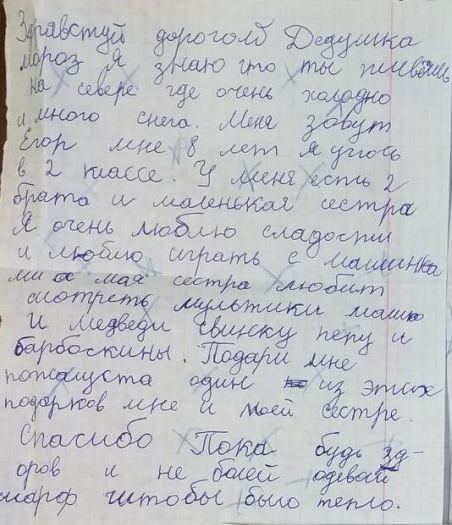 Здравстуй дорогой Дедушка
мороз Я знаю что ты живёшь
на севере где очень холодно
и много снега. Меня зовут
Егор мне 8 лет я учюсь
в 2 классе. У меня есть 2
брата и маленькая сестра
Я очень люблю сладости
и люблю играть с машинка
ми а мая сестра любит
смотреть мультики маша
И медведи Свинску пепу и
барбоскины. Подари мне
пожалуста один из этих
подорков мне и моей сестре.
Спасибо Пока будь зд-
оров и не болей одевай
шарф чтобы было тепло.